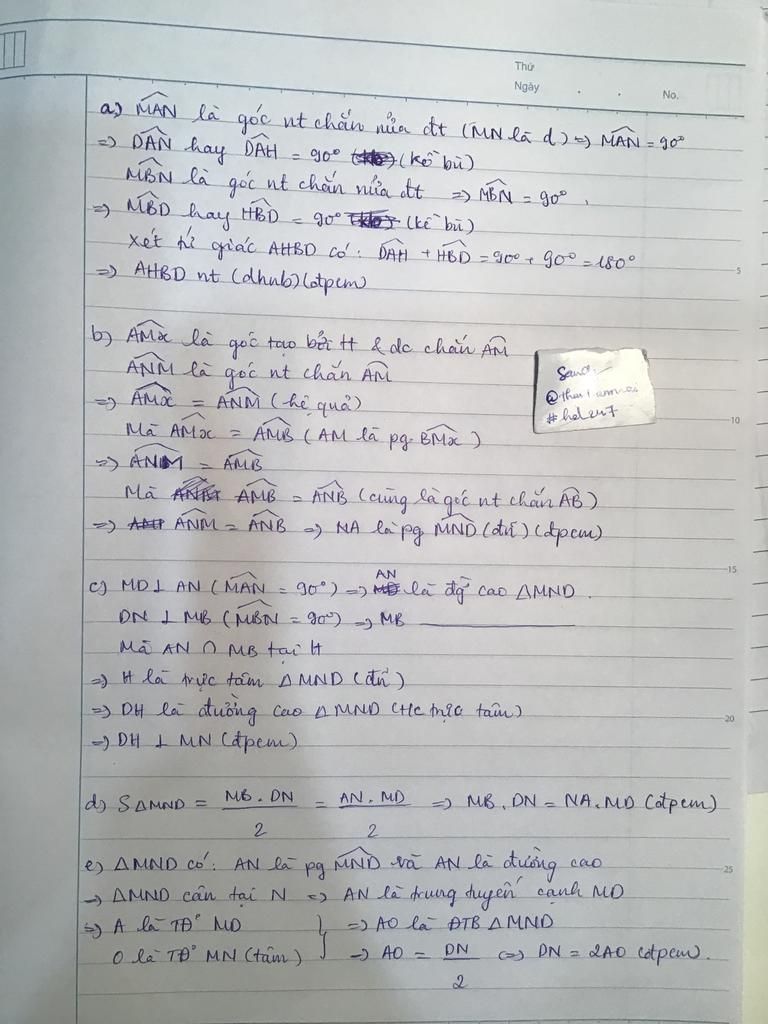 Thứ
Ngày . . No.
a) MAN là góc nt chắn nửa đt (MN là d) => MAN = 90°
=> DAN hay DAH = 90° (kề bù)
MBN là góc nt chắn nửa đt => MBN = 90°.
=> MBD hay HBD = 90° (kề bù)
Xét tứ giác AHBD có: DAH + HBD = 90° + 90° = 180°
5
=> AHBD nt (dhnb)(đpcm)
b) AMx là góc tạo bởi tt & dc chắn AM
ANM là góc nt chắn AM
=> AMx = ANM (hệ quả)
#hd247
10
Mà AMx = AMB (AM là pg BMx)
=> ANM = AMB
Mà AMB = ANB (cùng là góc nt chắn AB)
=> ANM = ANB => NA là pg MND (đn) (đpcm)
15
c) MD ⊥ AN (MAN = 90°) => AN là đg cao ΔMND.
DN ⊥ MB (MBN = 90°) => MB ————
Mà AN ∩ MB tại H
=> H là trực tâm ΔMND (đn)
=> DH là đường cao ΔMND (t/c trực tâm)
20
=> DH ⊥ MN (đpcm)
d) SΔMND = MB.DN/2 = AN.MD/2 => MB.DN = NA.MD (đpcm)
e) ΔMND có: AN là pg MND và AN là đường cao
25
=> ΔMND cân tại N => AN là trung tuyến cạnh MD
=> A là TĐ MD } => AO là ĐTB ΔMND
O là TĐ MN (tâm) } => AO = DN/2 <=> DN = 2AO (đpcm).